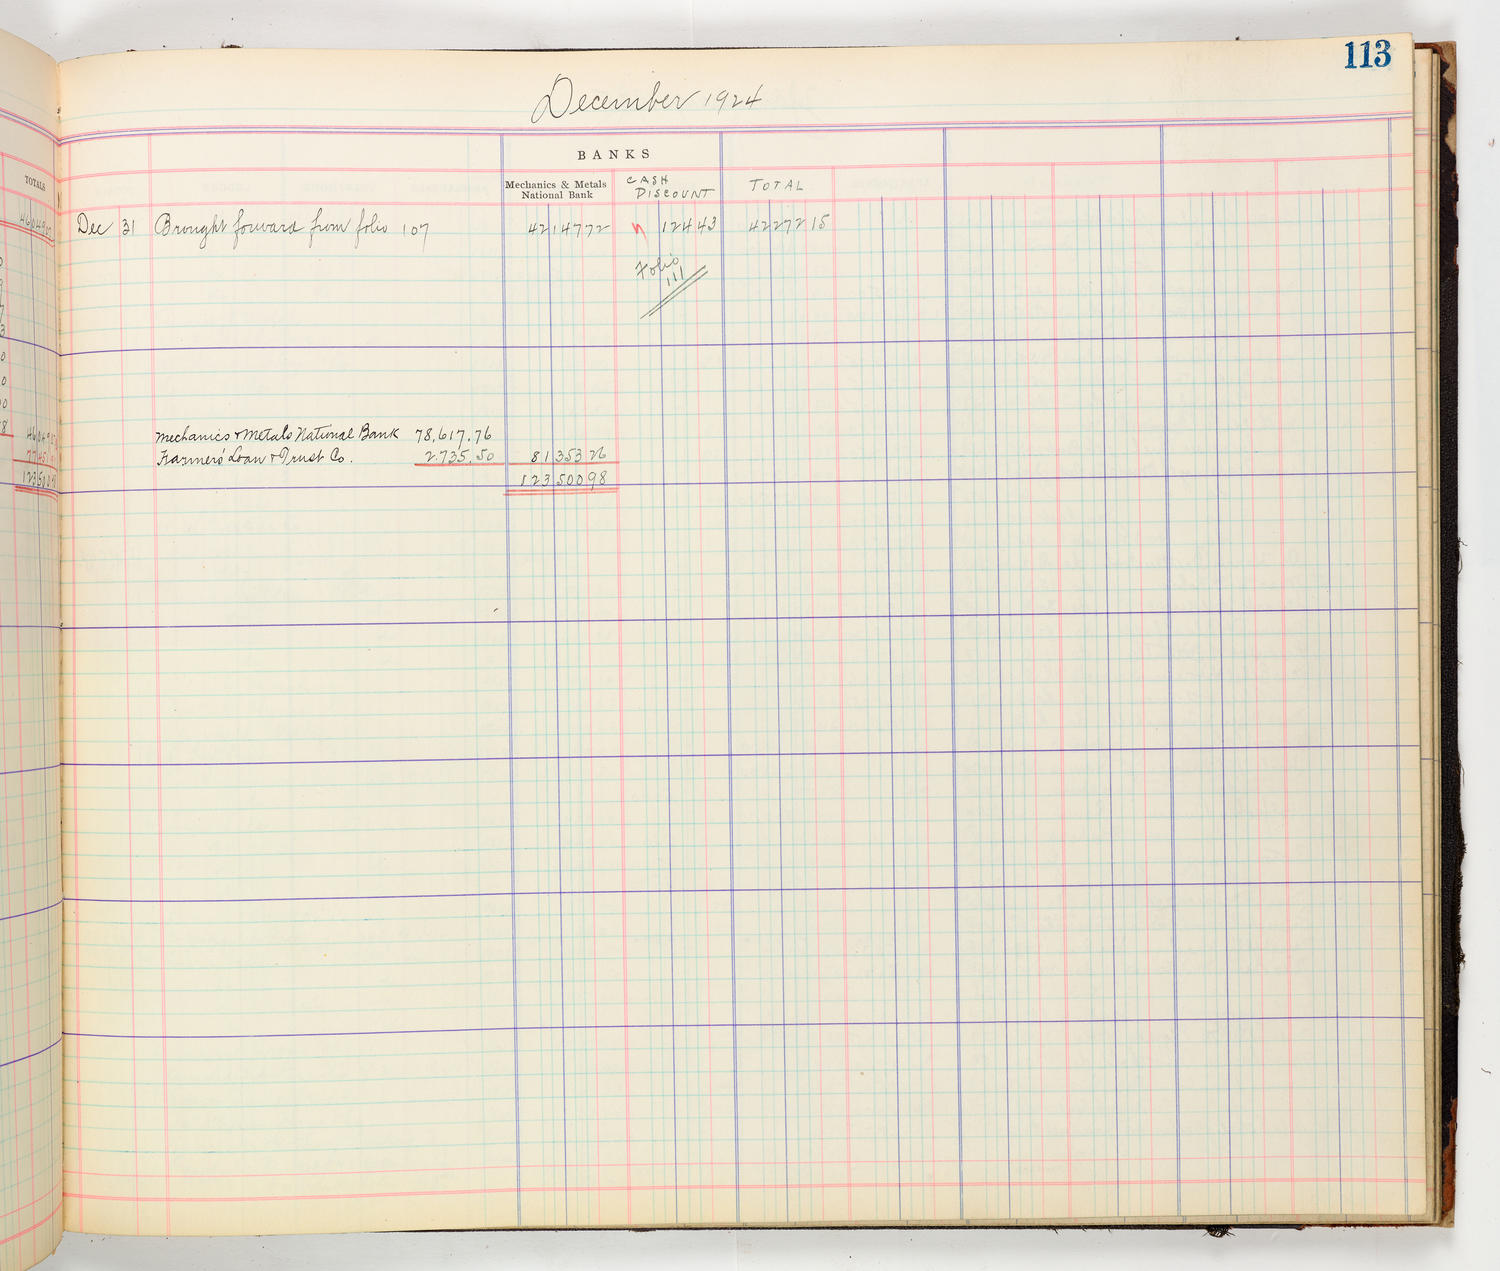 113
December 1924
TOTALS
BANKS
Mechanics & Metals
National Bank
CASH
DISCOUNT
TOTAL
Dec 31 Brought forward from folio 107 42147 72 124 43 42272 15
Folio
111
Mechanics & Metals National Bank 78,617.76
Farmers' Loan & Trust Co. 2.735.50 81353 26
123500 98